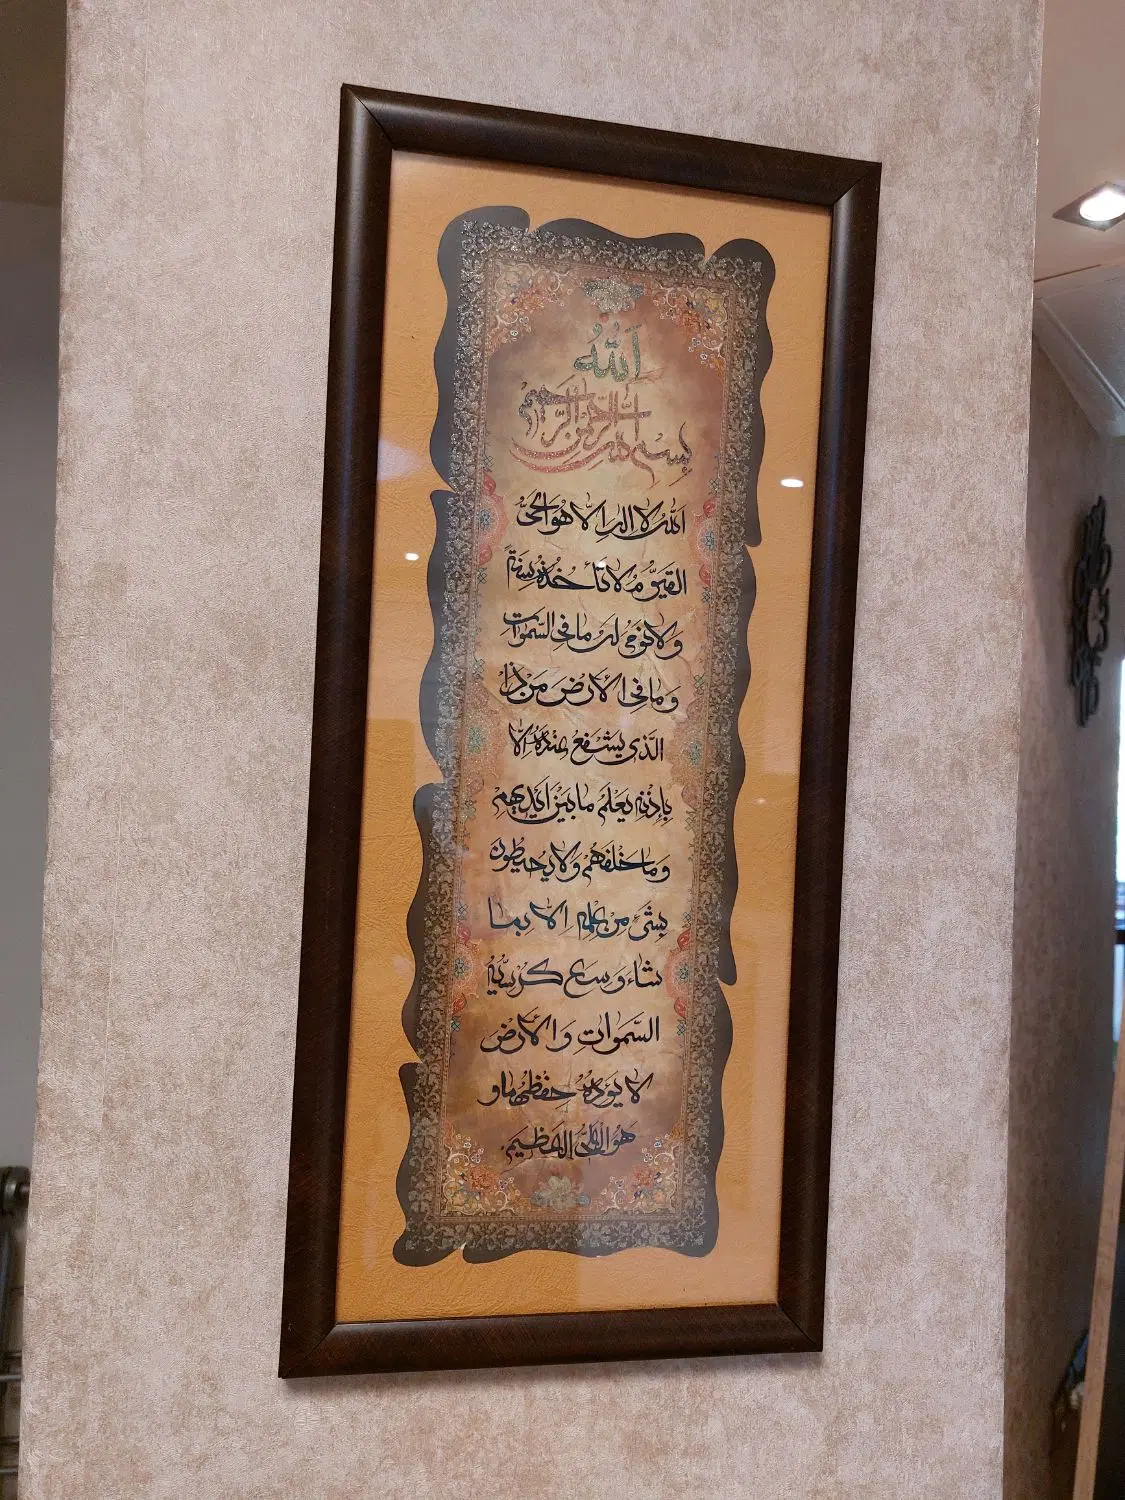 الله
بسم الله الرحمن الرحيم
اَللّهُ لا اِلهَ اِلّا هُوَ الحَىُّ
القَيّوُمُ لا تَأخُذُهُ سِنَةٌ
وَلا نَومٌ لَهُ ما فِى السَّمواتِ
وَما فِى الاَرْضِ مَن ذَا
الَّذى يَشْفَعُ عِندَهُ اِلّا
بِاِذْنِهِ يَعْلَمُ ما بَيْنَ اَيْديهِمْ
وَما خَلْفَهُمْ وَلا يُحيطُونَ
بِشَىْءٍ مِنْ عِلْمِهِ اِلّا بِما
شاءَ وَسِعَ كُرْسِيُّهُ
السَّمواتِ وَالاَرْضَ
لا يَؤدُهُ حِفْظُهُما وَ
هُوَ العَلِىُّ العَظيمُ